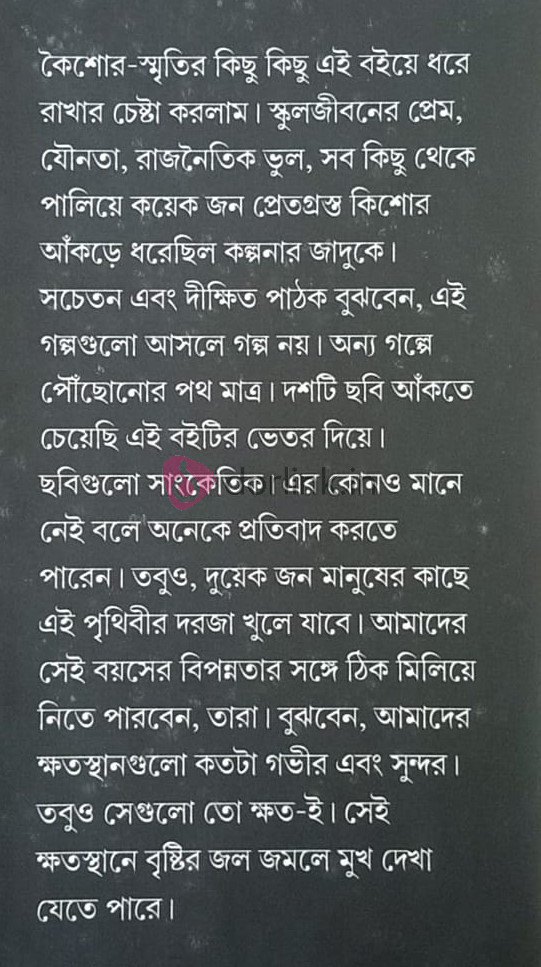 কৈশোর-স্মৃতির কিছু কিছু এই বইয়ে ধরে
রাখার চেষ্টা করলাম। স্কুলজীবনের প্রেম,
যৌনতা, রাজনৈতিক ভুল, সব কিছু থেকে
পালিয়ে কয়েক জন প্রেতগ্রস্ত কিশোর
আঁকড়ে ধরেছিল কল্পনার জাদুকে।
সচেতন এবং দীক্ষিত পাঠক বুঝবেন, এই
গল্পগুলো আসলে গল্প নয়। অন্য গল্পে
পৌঁছোনোর পথ মাত্র। দশটি ছবি আঁকতে
চেয়েছি এই বইটির ভেতর দিয়ে।
ছবিগুলো সাংকেতিক। এর কোনও মানে
নেই বলে অনেকে প্রতিবাদ করতে
পারেন। তবুও, দুয়েক জন মানুষের কাছে
এই পৃথিবীর দরজা খুলে যাবে। আমাদের
সেই বয়সের বিপন্নতার সঙ্গে ঠিক মিলিয়ে
নিতে পারবেন, তারা। বুঝবেন, আমাদের
ক্ষতস্থানগুলো কতটা গভীর এবং সুন্দর।
তবুও সেগুলো তো ক্ষত-ই। সেই
ক্ষতস্থানে বৃষ্টির জল জমলে মুখ দেখা
যেতে পারে।